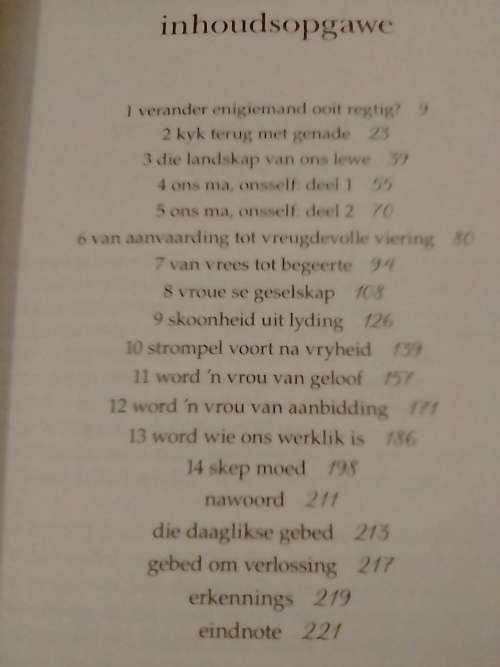 inhoudsopgawe
1 verander enigiemand ooit regtig? 9
2 kyk terug met genade 23
3 die landskap van ons lewe 39
4 ons ma, onsself: deel 1 55
5 ons ma, onsself: deel 2 70
6 van aanvaarding tot vreugdevolle viering 80
7 van vrees tot begeerte 94
8 vroue se geselskap 108
9 skoonheid uit lyding 126
10 strompel voort na vryheid 139
11 word 'n vrou van geloof 157
12 word 'n vrou van aanbidding 171
13 word wie ons werklik is 186
14 skep moed 198
nawoord 211
die daaglikse gebed 213
gebed om verlossing 217
erkennings 219
eindnote 221